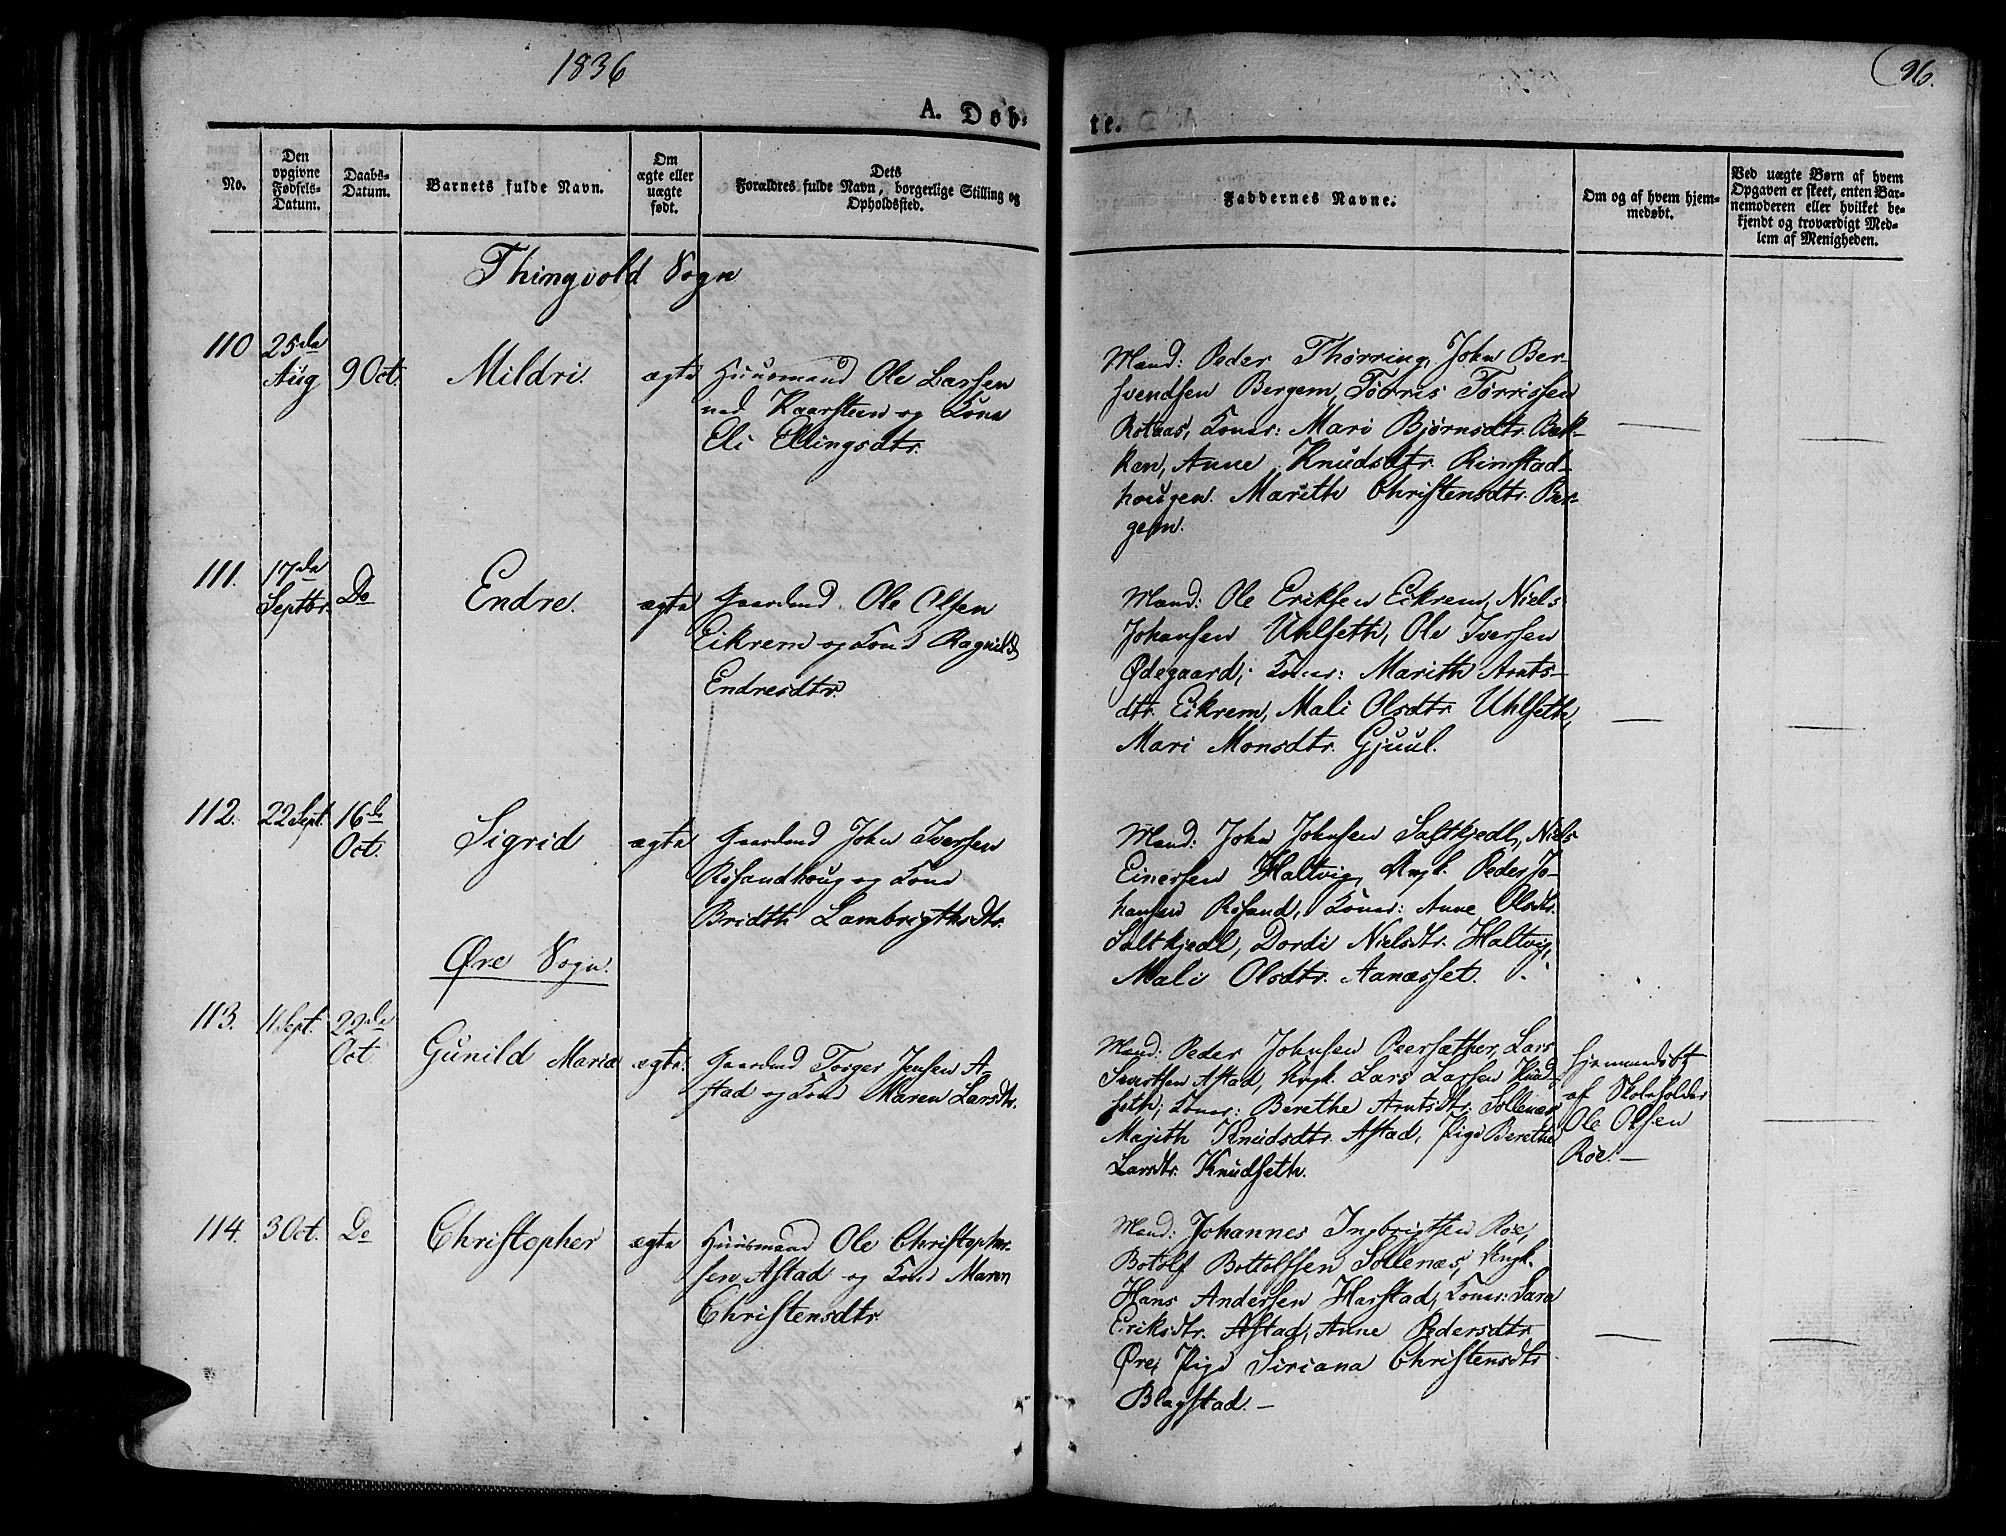 1836
96.
A. Døb-
te.
No.
Den
opgivne
Fødsels-
Datum.
Daabs-
Datum.
Barnets fulde Navn.
Om
ægte eller
uægte
født.
Dets
Forældres fulde Navn, borgerlige Stilling og
Opholdssted.
Faddernes Navne.
Om og af hvem hjem-
medøbt.
Ved uægte Børn af hvem
Opgaven er skeet, enten Bar-
nemoderen eller hvilket be-
kjendt og troværdigt Med-
lem af Menigheden.
Thingvold Sogn
110
25de
Aug
9 Oct.
Mildri.
ægte
Huusmand Ole Larssen
ned Kaarsteen og Kone
Eli Ellingsdtr.
Mænd: Peder Thørring, John Ber-
svendsen Bergem, Torris Torrissen
Rotaas, Koner: Mari Bjørnsdtr. Bak-
ken, Anne Knudsdtr. Rimstad-
hougen. Marith Christensdtr. Ber-
gem.
111.
17de
Septbr.
Do
Endre.
ægte
Gaardmd. Ole Olsen
Eikrem og Kone Ragnild
Endresdtr.
Mænd: Ole Eriksen Eikrem, Niels
Johansen Uhlseth, Ole Iversen
Ødegaard; Koner: Marith Arnts-
dtr. Eikrem, Mali Olsdtr. Uhlseth,
Mari Monsdtr. Gjuul.
112.
22 Sept.
16de
Oct.
Sigrid
ægte
Gaardmd John Iversen
Røsandhoug og Kone
Bridth Lambrigthsdtr.
Mænd: John Johnsen Saltkjedl, Niels
Einersen Haltvig, Ungk. Peder Jo-
hansen Røsand, Koner: Anne Olsdtr.
Saltkjedl, Dordi Nielsdtr. Haltvig,
Mali Olsdtr. Aanæsset.
Øre Sogn.
113.
11 Sept.
22de
Oct.
Gunild Maria
ægte
Gaardmd Torger Jensen A-
stad og Kone Maren Larsdtr.
Mænd: Peder Johnsen Peersæther, Lars
Sivertsen Astad, Ungk. Lars Larsen Knud-
seth; Koner: Berethe Arntsdtr. Sollenæs
Marith Knudsdtr. Astad, Pige Berethe
Larsdtr. Knudseth.
hjemmedøbt
af Skoleholder
Ole Olsen
Roe. —
114.
3 Oct.
Do
Christopher
ægte
Huusmand Ole Christopher-
sen Astad og Kone Maren
Christensdtr.
Mænd: Johannes Ingbrigtsen Roe,
Botolf Bottolfsen Sollenæs, Ungk.
Hans Andersen Harstad, Koner: Sara
Eriksdtr. Astad, Anne Pedersdtr.
Øre, Pige Siriana Christensdtr
Blagstad. —